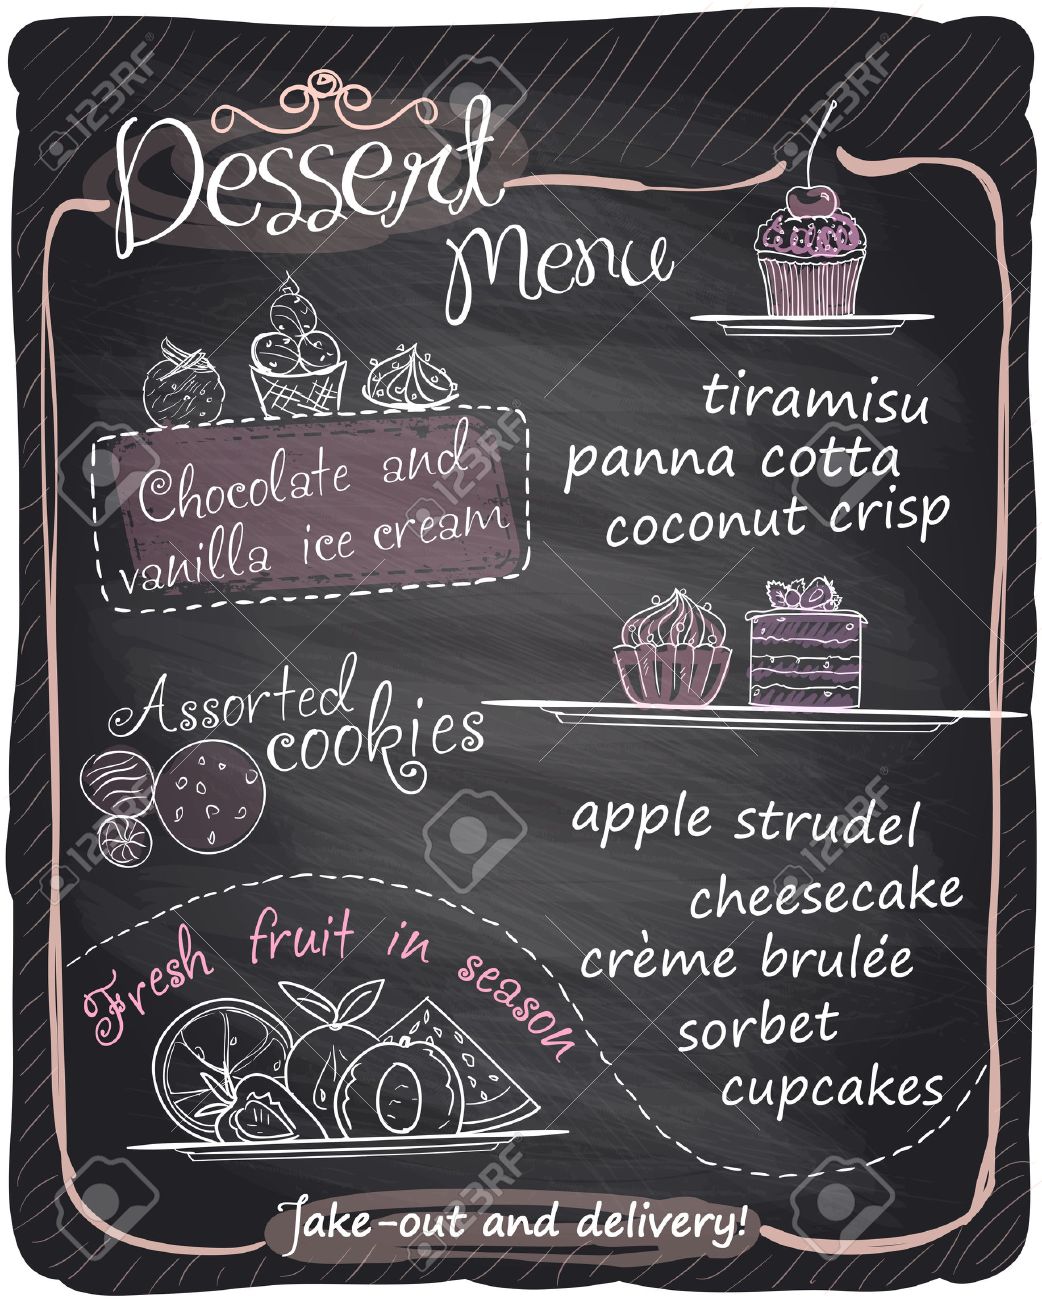 Dessert
Menu
Chocolate and
vanilla ice cream
tiramisu
panna cotta
coconut crisp
Assorted
cookies
apple strudel
cheesecake
crème brulée
sorbet
cupcakes
Fresh fruit in season
Take-out and delivery!
123RF